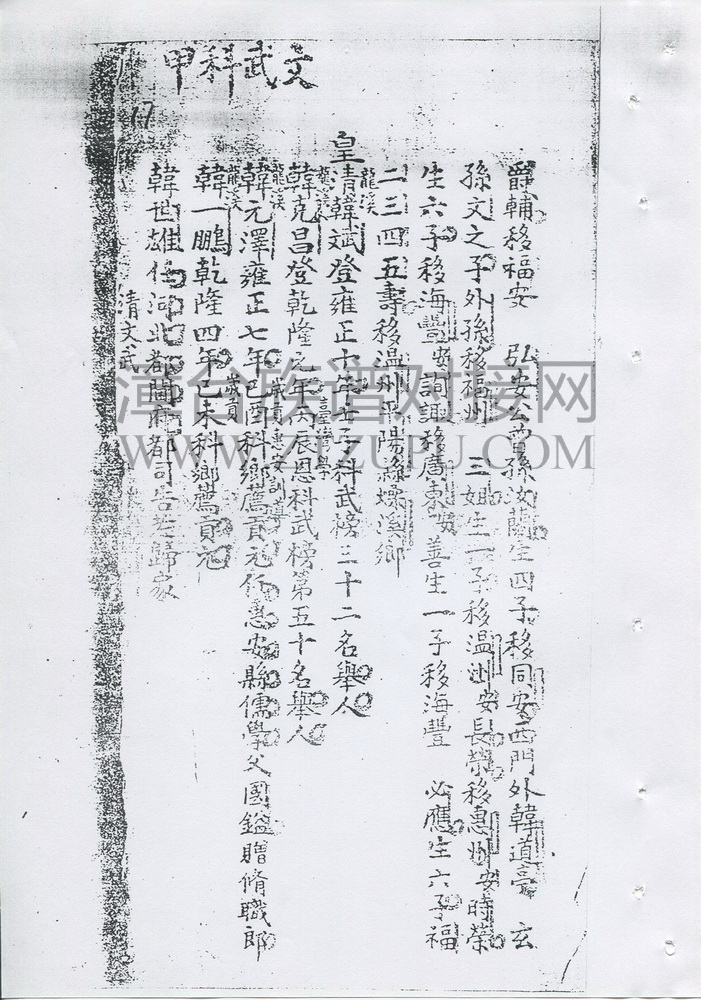 文武科甲
17
爵輔移福安 弘安公曾孫汝薩生四子移同安西門外韓道亭 玄
孫文之子外孫移福州 三姐生一子移温州安長榮移惠州安時榮
生六子移海豐安詞諏移廣東安 善生一子移海豐 必應生六子福
二三四五壽移温州平陽縣燥溪鄉
龍溪
皇清韓斌登雍正十年壬子科武榜三十二名舉人
龍溪 臺灣學
韓克昌登乾隆元年丙辰恩科武榜第五十名舉人
龍溪 歲貢惠安訓導
韓元澤雍正七年己酉科鄉薦貢元任惠安縣儒學父國鎰贈脩職郎
龍溪 歲貢
韓一鵬乾隆四年己未科鄉薦貢元
韓世雄任河北都閫府都司告老歸家
清文武
漳台族谱对接网
WWW.ZTZUPU.COM